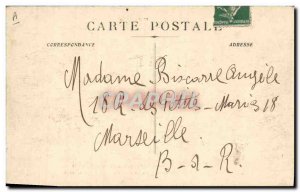 A
CARTE POSTALE
CORRESPONDANCE
ADRESSE
Madame Biscarre Angèle
18 R. des Ptites-Maries 18
Marseille.
B-d-R.